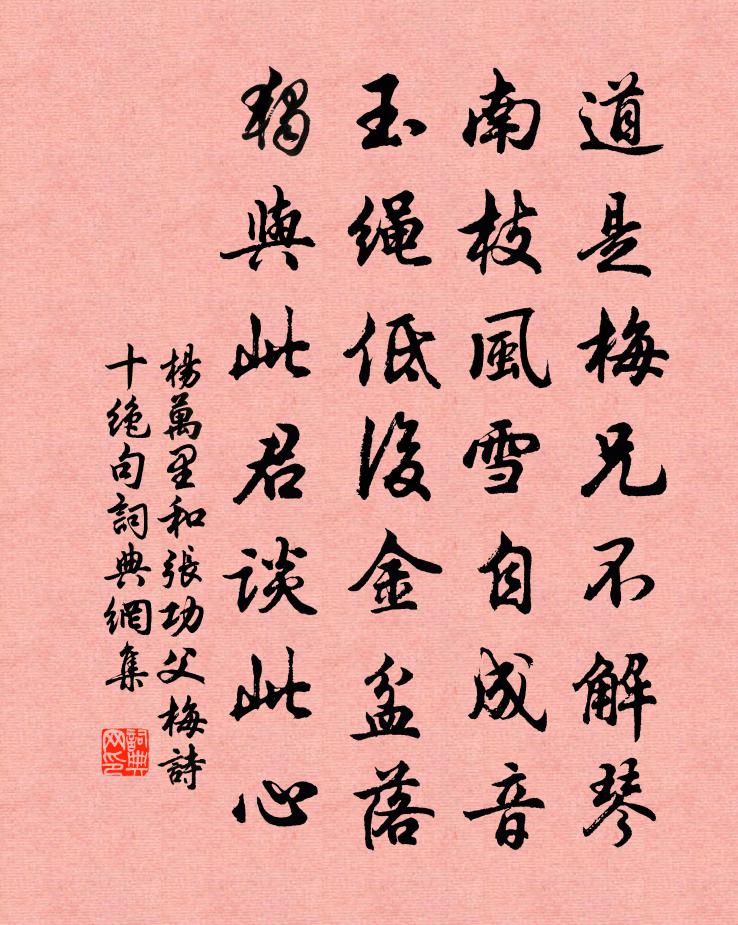 道是梅兄不解琴
南枝風雪自成音
玉绳低後金盆落
獨與此君谈此心
楊萬里和張功父梅詩
十绝句詞典網集
詞典
网印